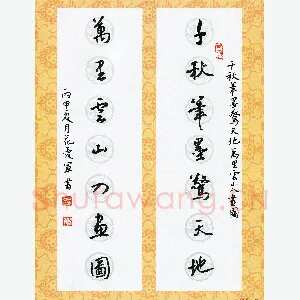 千秋筆墨驚天地
千秋筆墨驚天地萬里雲山入畫圖
萬里雲山入畫圖
丙申夏月
Shufawang.cn